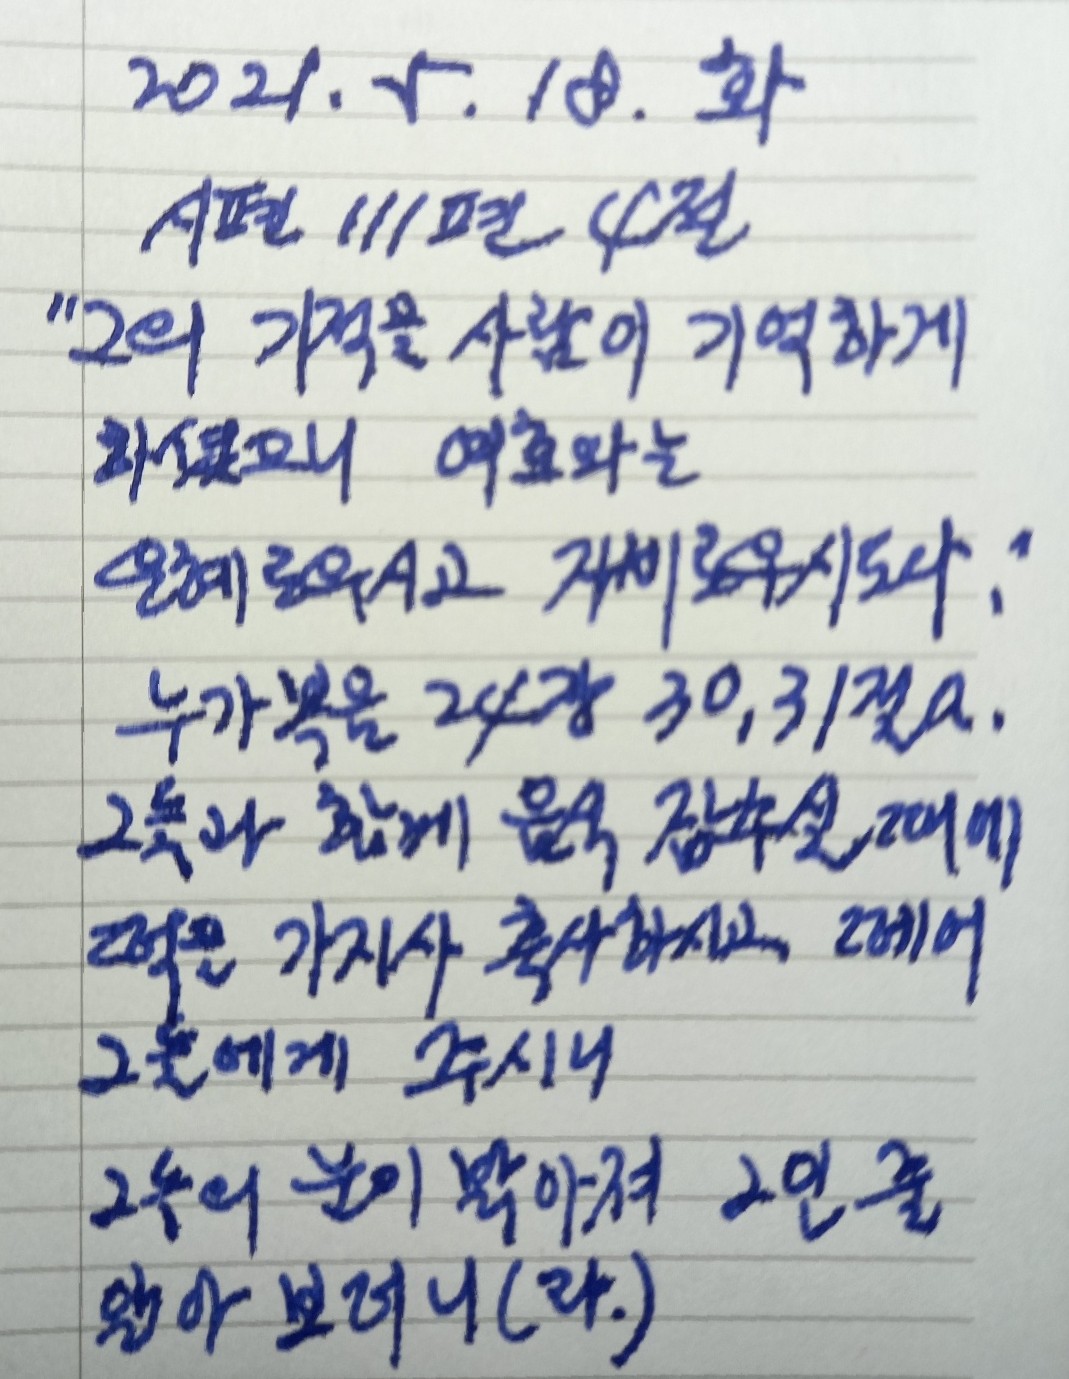 2021. 5. 18. 화
시편 111편 4절
"그의 기적을 사람이 기억하게
하셨으니 여호와는
은혜로우시고 자비로우시도다."
누가복음 24장 30,31절a.
그들과 함께 음식 잡수실 때에
떡을 가지사 축사하시고 떼어
그들에게 주시니
그들의 눈이 밝아져 그인 줄
알아 보더니(라.)